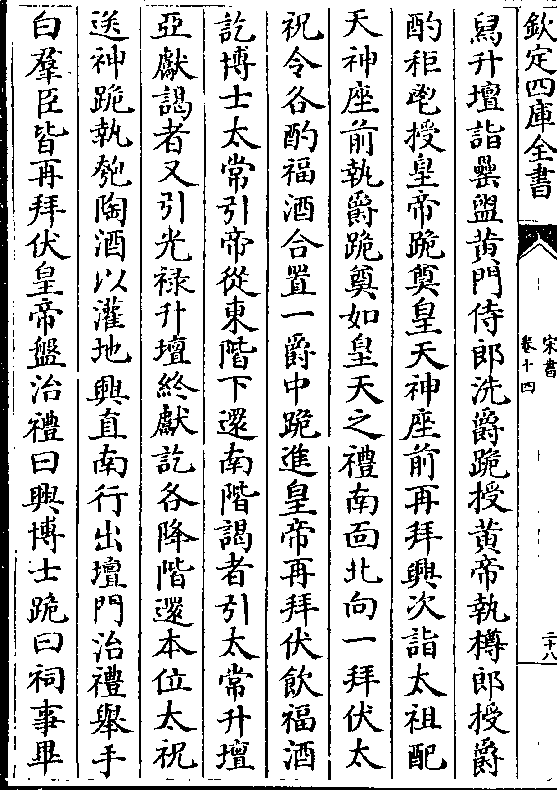 欽定四庫全書
宋書
卷十四
二十八
舄升壇詣罍盥黄門侍郎洗爵跪授黄帝執樽郎授爵
酌秬鬯授皇帝跪奠皇天神座前再拜興次詣太祖配
天神座前執爵跪奠如皇天之禮南面北向一拜伏太
祝令各酌福酒合置一爵中跪進皇帝再拜伏飲福酒
訖博士太常引帝從東階下還南階謁者引太常升壇
亞獻謁者又引光禄升壇終獻訖各降階還本位太祝
送神跪執匏陶酒以灌地興直南行出壇門治禮舉手
白羣臣皆再拜伏皇帝盤治禮曰興博士跪曰祠事畢